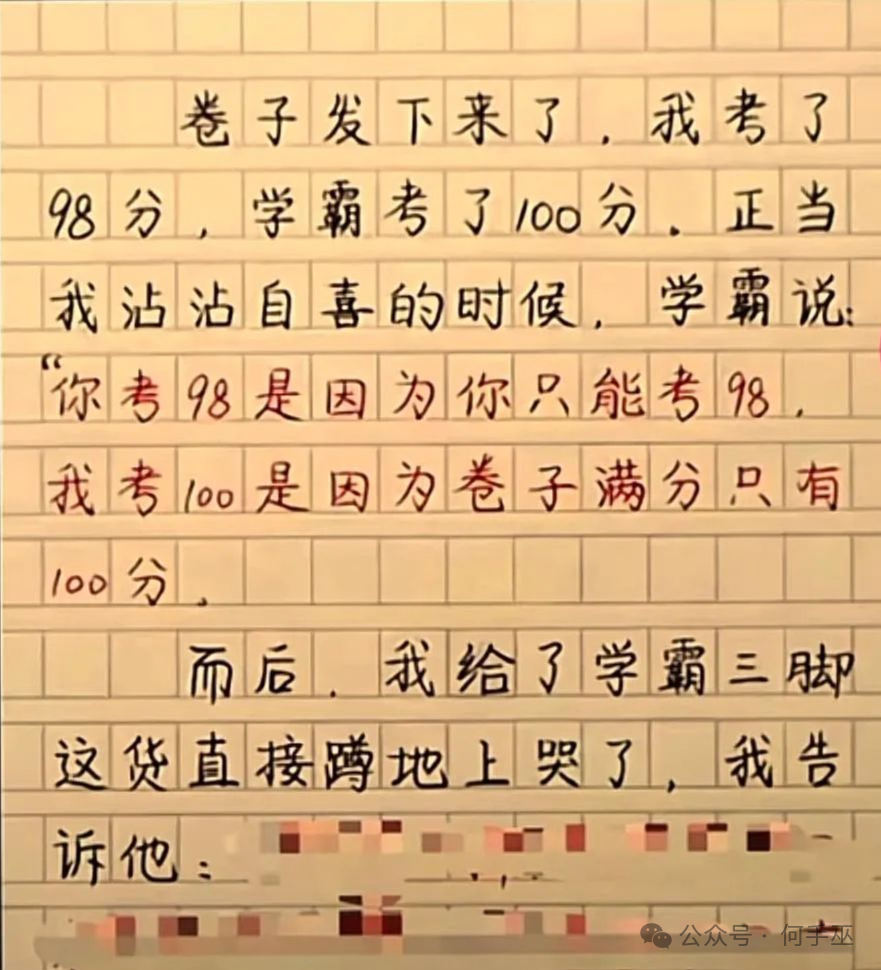 卷子发下来了.我考了
98分,学霸考了100分.正当
我沾沾自喜的时候,学霸说:
“你考98是因为你只能考98.
我考100是因为卷子满分只有
100分.
而后.我给了学霸三脚
这货直接蹲地上哭了,我告
诉他:
公众号·何手巫